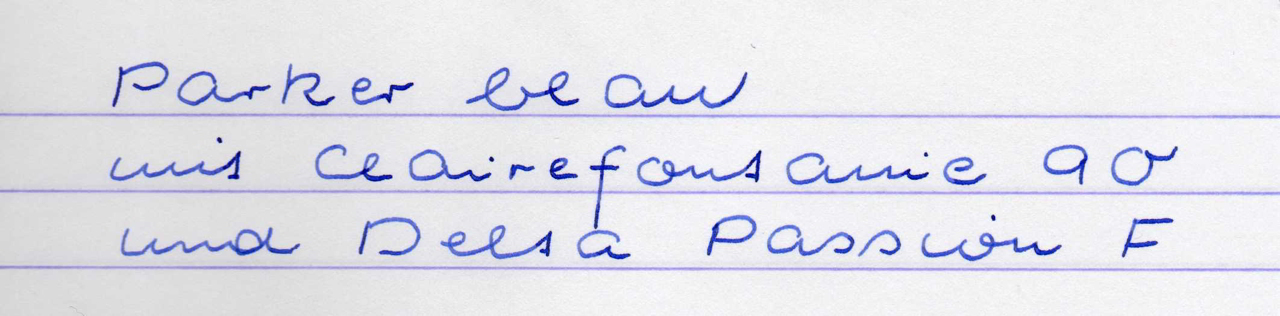 Parker blau
mit Clairefontaine 90
und Delta Passion F